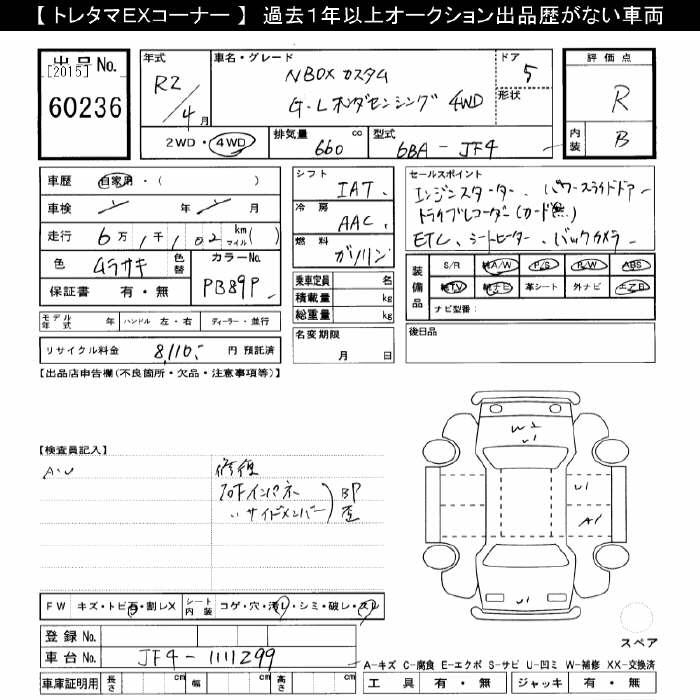 【 トレタマEXコーナー 】 過去１年以上オークション出品歴がない車両
出品 No.
[2015]
60236
年式
R2/4月
車名・グレード
NBOX カスタム
G・Lホンダセンシング 4WD
ドア
5
形状
評価点
R
内装
B
2WD・4WD
排気量
660 cc
型式
6BA-JF4
車歴 自家用・( )
車検 年 月
走行 6万1千102 km マイル( )
色 ムラサキ
色替
カラーNo.
PB89P
保証書 有・無
モデル年式 年
ハンドル 左・右
ディーラー・並行
リサイクル料金 8,110- 円 預託済
シフト
IAT
冷房
AAC
燃料
ガソリン
乗車定員 名
積載量 kg
総重量 kg
名変期限
月 日
セールスポイント
エンジンスターター、パワースライドドア
ドライブレコーダー(カード無)
ETC、シートヒーター、バックカメラ
装備品
S/R 純A/W P/S P/W ABS
純TV 純ナビ 革シート 外ナビ エアB
ナビ型番:
後日品
【出品店申告欄(不良箇所・欠品・注意事項等)】
【検査員記入】
A・U
修復
フロアインパネ
サイドメンバー
BP
歪
W2
U1
U1
A1
U1
FW キズ・トビ石・割レX
シート内装 コゲ・穴・汚レ・シミ・破レ・スレ
登録 No.
車台 No. JF4-1111299
車庫証明用 長さ cm 幅 cm 高さ cm
スペア
A-キズ C-腐食 E-エクボ S-サビ U-凹ミ W-補修 XX-交換済
工具 有・無 ジャッキ 有・無